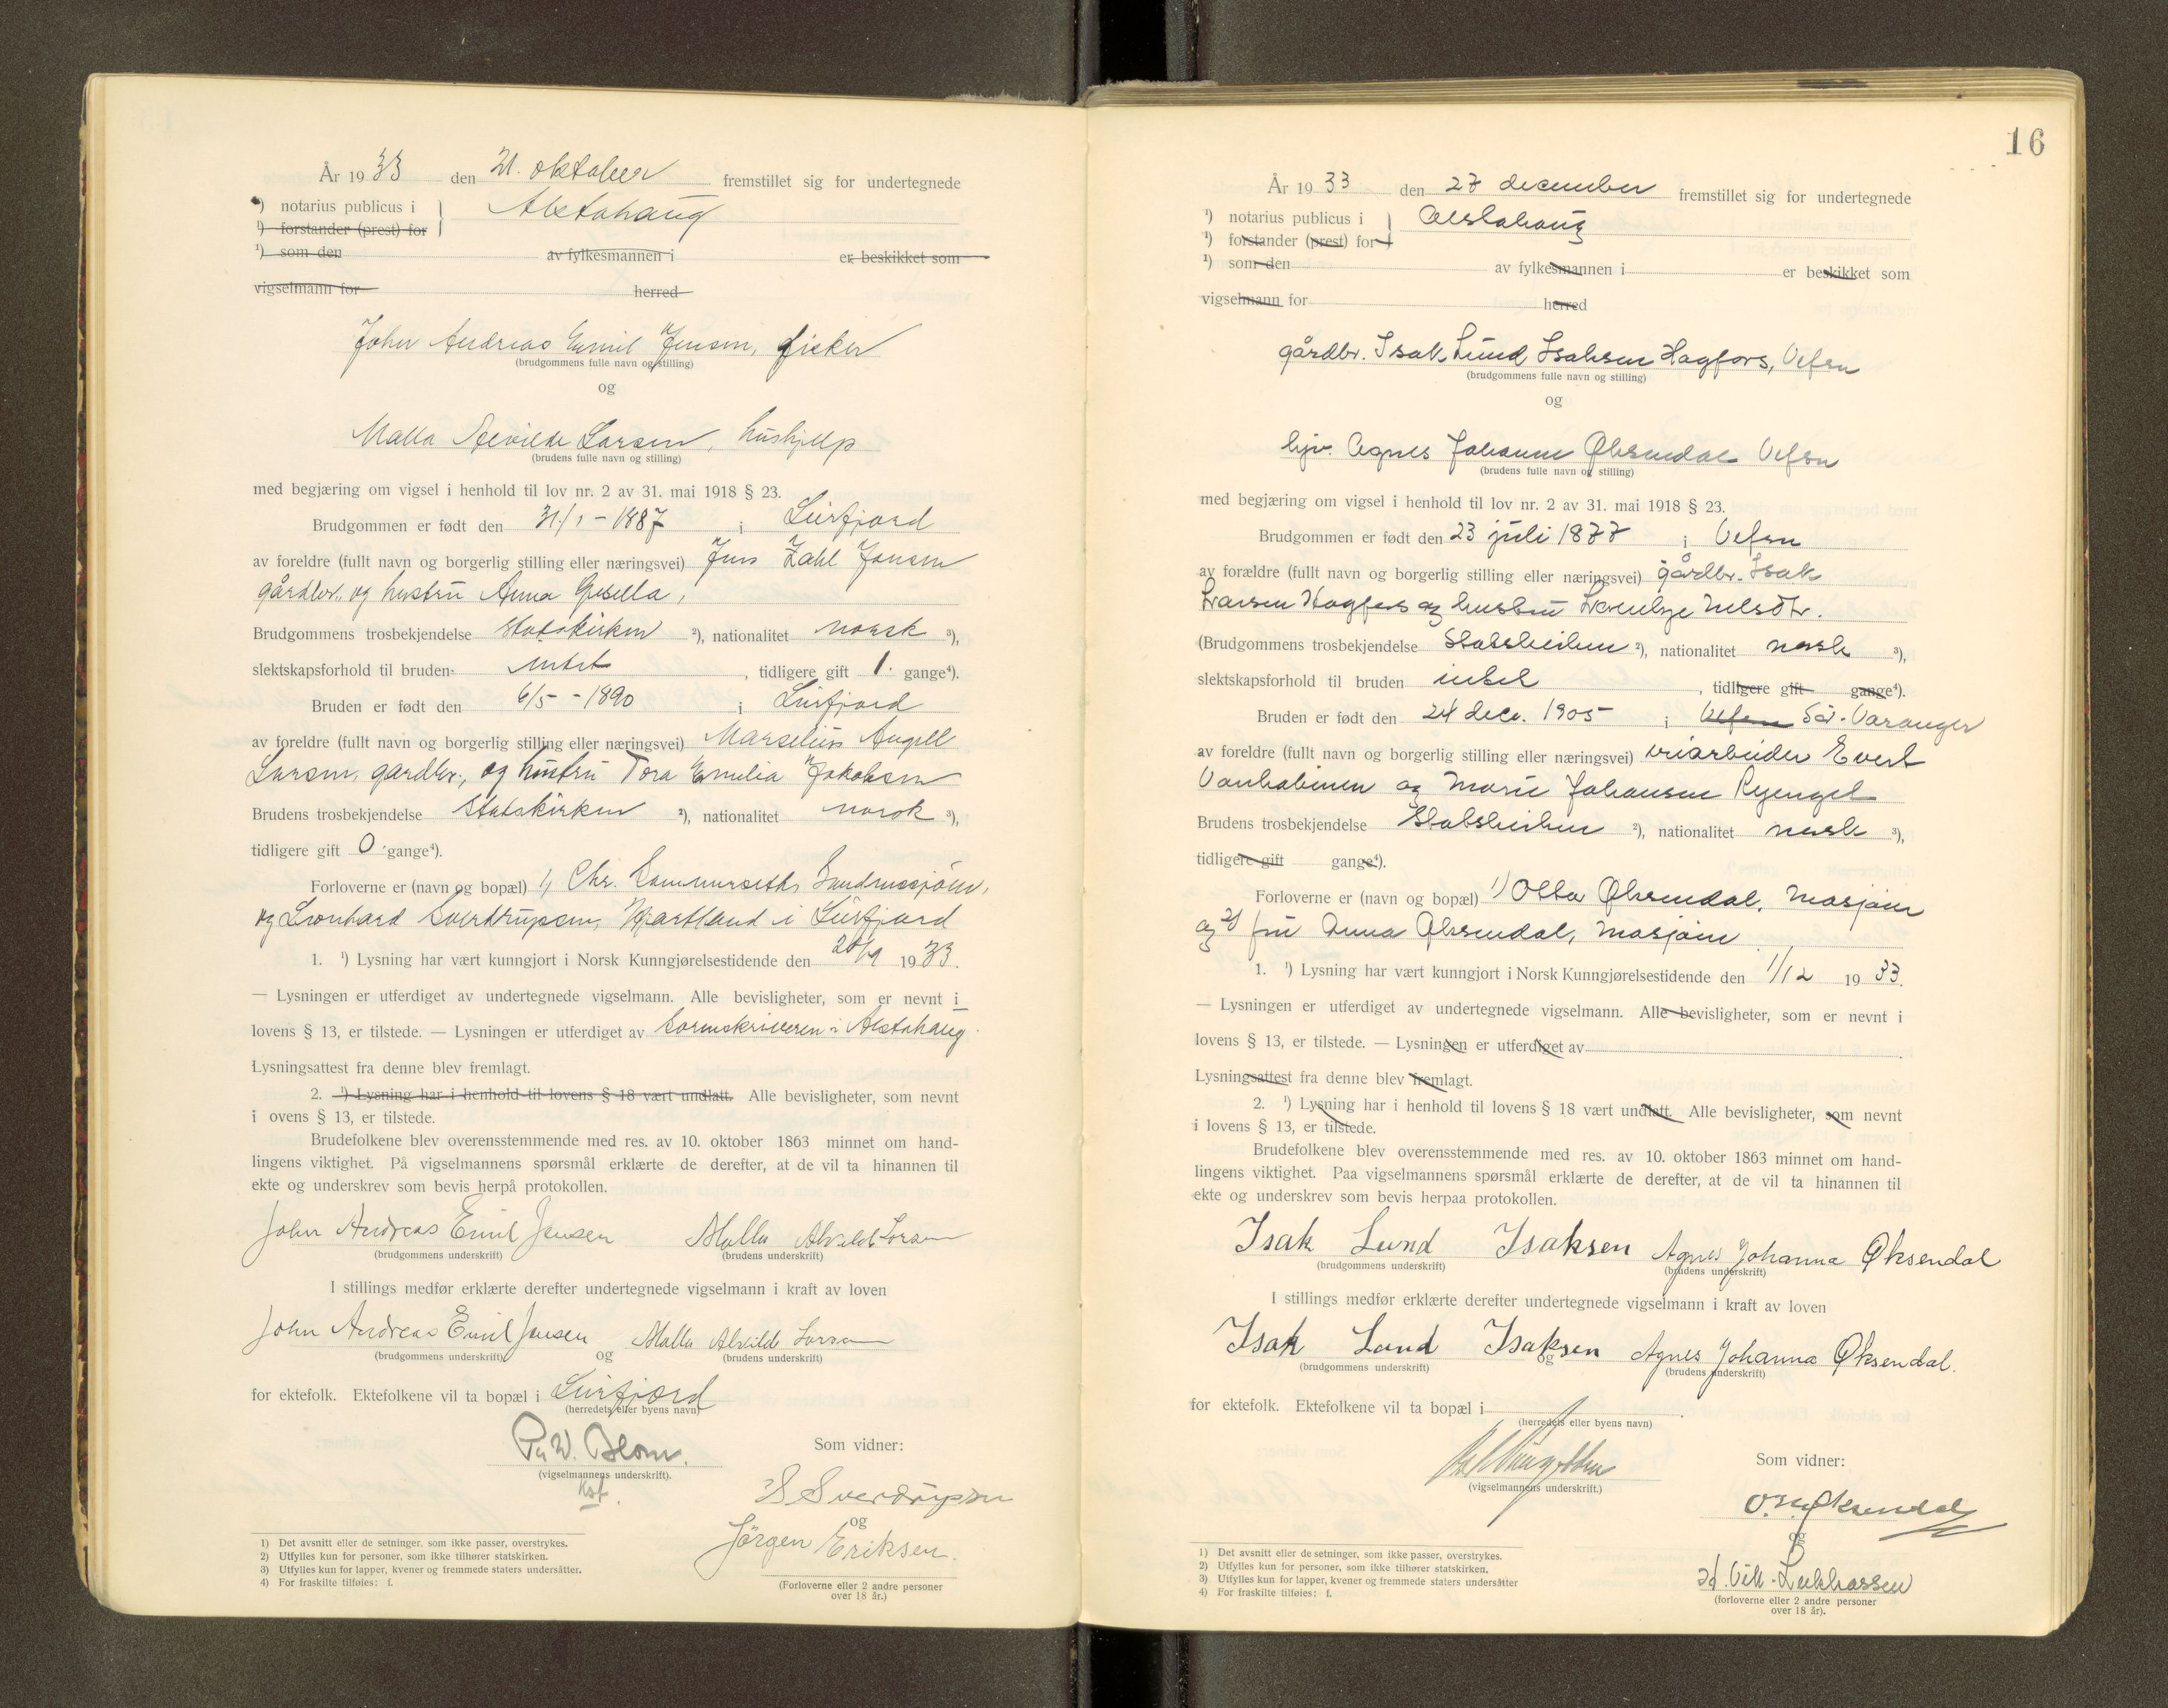 År 1933 den 21. oktober fremstillet sig for undertegnede
¹) notarius publicus i } Alstahaug
¹) forstander (prest) for
¹) som den av fylkesmannen i er beskikket som
vigselmann for herred
John Andreas Emil Jensen, fisker
(brudgommens fulle navn og stilling)
og
Malla Alvilde Larsen, hushjelp
(brudens fulle navn og stilling)
med begjæring om vigsel i henhold til lov nr. 2 av 31. mai 1918 § 23.
Brudgommen er født den 31/1 - 1887 i Leirfjord
av foreldre (fullt navn og borgerlig stilling eller næringsvei) Jens Zahl Jensen
gårdbr. og hustru Anna Gisella,
Brudgommens trosbekjendelse Statskirken ²), nationalitet norsk ³),
slektskapsforhold til bruden intet, tidligere gift 1. gange⁴).
Bruden er født den 6/5 - 1890 i Leirfjord
av foreldre (fullt navn og borgerlig stilling eller næringsvei) Marselius Angell
Larsen, gardbr., og hustru Tora Emilia Jakobsen
Brudens trosbekjendelse Statskirken ²), nationalitet norsk ³),
tidligere gift 0 gange⁴).
Forloverne er (navn og bopæl) 1, Chr. Sandnessjøen,
og Leonhard Sverdrupsen, Hjartland i Leirfjord
1. ¹) Lysning har vært kunngjort i Norsk Kunngjørelsestidende den 20/9 1933.
— Lysningen er utferdiget av undertegnede vigselmann. Alle bevisligheter, som er nevnt i
lovens § 13, er tilstede. — Lysningen er utferdiget av Sorenskriveren i Alstahaug.
Lysningsattest fra denne blev fremlagt.
2. ¹) Lysning har i henhold til lovens § 18 vært undlatt. Alle bevisligheter, som nevnt
i ovens § 13, er tilstede.
Brudefolkene blev overensstemmende med res. av 10. oktober 1863 minnet om hand-
lingens viktighet. På vigselmannens spørsmål erklærte de derefter, at de vil ta hinannen til
ekte og underskrev som bevis herpå protokollen.
John Andreas Emil Jensen Malla Alvilde Larsen
(brudgommens underskrift) (brudens underskrift)
I stillings medfør erklærte derefter undertegnede vigselmann i kraft av loven
John Andreas Emil Jensen og Malla Alvilde Larsen
(brudgommens underskrift) (brudens underskrift)
for ektefolk. Ektefolkene vil ta bopæl i Leirfjord
(herredets eller byens navn)
Per W. Blom.
(vigselmannens underskrift).
kst.
Som vidner:
Sverdrupsen
og
Jörgen Eriksen.
(Forloverne eller 2 andre personer
over 18 år.)
1) Det avsnitt eller de setninger, som ikke passer, overstrykes.
2) Utfylles kun for personer, som ikke tilhører statskirken.
3) Utfylles kun for lapper, kvener og fremmede staters undersåtter.
4) For fraskilte tilføies: f.
16
År 1933 den 27 december fremstillet sig for undertegnede
¹) notarius publicus i } Alstahaug
¹) forstander (prest) for
¹) som den av fylkesmannen i er beskikket som
vigselmann for herred
gårdbr. Isak Lund Isaksen Hagfors, Vefsn
(brudgommens fulle navn og stilling)
og
Agnes Johanne Øksendal Vefsn
(brudens fulle navn og stilling)
med begjæring om vigsel i henhold til lov nr. 2 av 31. mai 1918 § 23.
Brudgommen er født den 23 juli 1877 i Vefsn
av forældre (fullt navn og borgerlig stilling eller næringsvei) gårdbr. Isak
Larsen Hagfors og hustru Nelsdtr.
(Brudgommens trosbekjendelse Statskirken ²), nationalitet norsk ³),
slektskapsforhold til bruden intet, tidligere gift gange⁴).
Bruden er født den 24 decr. 1905 i Vefsn Sør-Varanger
av foreldre (fullt navn og borgerlig stilling eller næringsvei) Evert
og Marie Johansen
Brudens trosbekjendelse Statskirken ²), nationalitet norsk ³),
tidligere gift gange⁴).
Forloverne er (navn og bopæl) 1) Otto Øksendal, Mosjøen
og 2) fru Anna Øksendal, Mosjøen
1. ¹) Lysning har vært kunngjort i Norsk Kunngjørelsestidende den 1/12 1933.
— Lysningen er utferdiget av undertegnede vigselmann. Alle bevisligheter, som er nevnt i
lovens § 13, er tilstede. — Lysningen er utferdiget av
Lysningsattest fra denne blev fremlagt.
2. ¹) Lysning har i henhold til lovens § 18 vært undlatt. Alle bevisligheter, som nevnt
i lovens § 13, er tilstede.
Brudefolkene blev overensstemmende med res. av 10. oktober 1863 minnet om hand-
lingens viktighet. Paa vigselmannens spørsmål erklærte de derefter, at de vil ta hinannen til
ekte og underskrev som bevis herpaa protokollen.
Isak Lund Isaksen Agnes Johanna Øksendal
(brudgommens underskrift) (brudens underskrift)
I stillings medfør erklærte derefter undertegnede vigselmann i kraft av loven
Isak Lund Isaksen og Agnes Johanna Øksendal.
(brudgommens underskrift) (brudens underskrift)
for ektefolk. Ektefolkene vil ta bopæl i
(herredets eller byens navn)
(vigselmannens underskrift.)
Som vidner:
Øksendal
og
(forloverne eller 2 andre personer
over 18 år).
1) Det avsnitt eller de setninger, som ikke passer, overstrykes.
2) Utfylles kun for personer, som ikke tilhører statskirken.
3) Utfylles kun for lapper, kvener og fremmede staters undersåtter
4) For fraskilte tilføies: f.